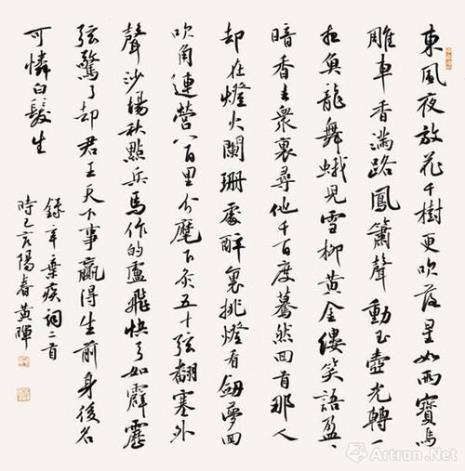 東風夜放花千樹更吹落星如雨寶馬
雕車香滿路鳳簫聲動玉壺光轉一
夜魚龍舞蛾兒雪柳黃金縷笑語盈〻
暗香去衆裏尋他千百度驀然回首那人
却在燈火闌珊處醉裏挑燈看劍夢回
吹角連營八百里分麾下炙五十弦翻塞外
聲沙場秋點兵馬作的盧飛快弓如霹靂
弦驚了却君王天下事贏得生前身後名
可憐白髮生
錄辛棄疾詞二首
時己亥陽春黃暉
Artron.Net